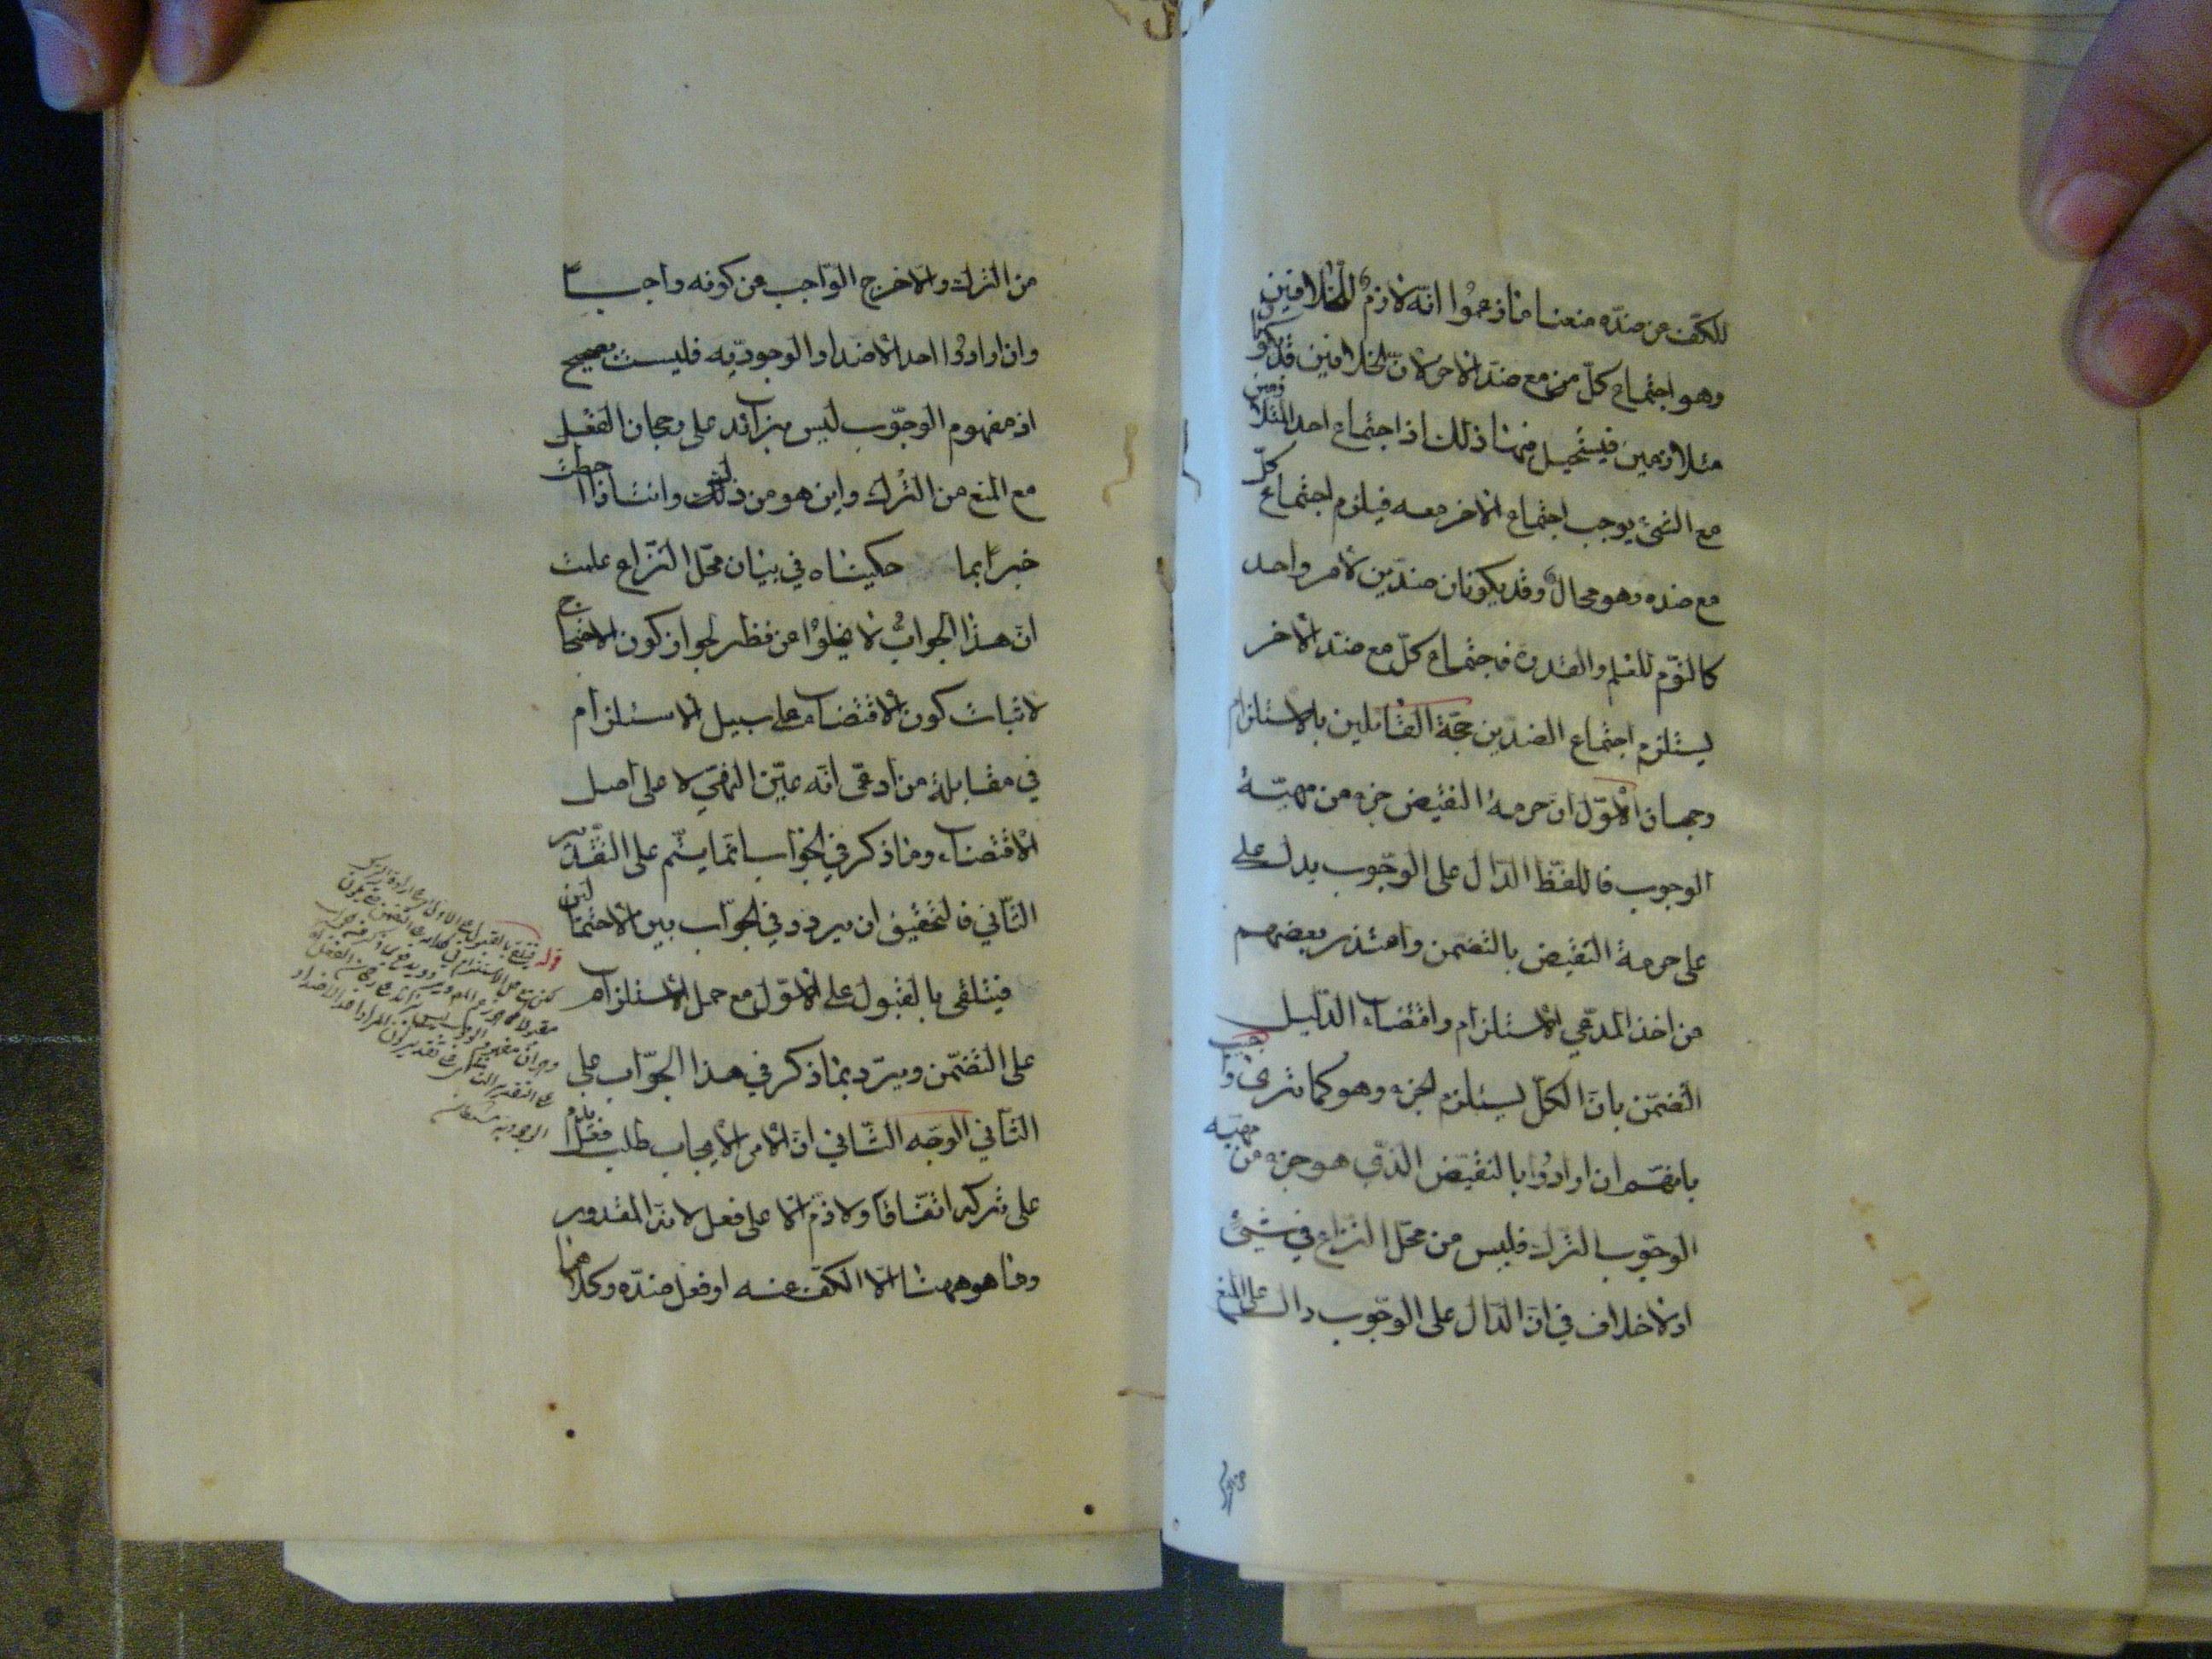 للكف عن ضده منعنا ما زعموا انه لازم للخلافين
وهو اجتماع كل من مع ضد الاخر لان الخلافين قد يكونا
متلازمين فيستحيل فيهما ذلك اذ اجتماع احد المتلازمين
مع الشئ يوجب اجتماع الاخر معه فيلزم اجتماع كل
مع ضده وهو محال وقد يكونان ضدين لامر واحد
كالنوم للعلم والقدرة فاجتماع كل مع ضد الاخر
يستلزم اجتماع الضدين حجة القائلين بالاستلزام
وجهان الاول ان حرمة النقيض جزء من مهية
الوجوب فاللفظ الدال على الوجوب يدل على
على حرمة النقيض بالتضمن واعتذر بعضهم
من اخذ المدعي الاستلزام واقتضاء الدليل
التضمن بان الكل يستلزم الجزء وهو كما ترى واجيب
بانهم ان ارادوا بالنقيض الذي هو جزء من مهية
الوجوب الترك فليس من محل النزاع في شئ
اذ لا خلاف في ان الدال على الوجوب دال على المنع
من الترك والا خرج الواجب من كونه واجبا
وان ارادوا احد الاضداد الوجودية فليست بصحيح
اذ مفهوم الوجوب ليس بزائد على رجحان الفعل
مع المنع من الترك واين هو من ذلك وانت اذا احطت
خبرا بما حكيناه في بيان محل النزاع علمت
ان هذا الجواب لا يخلوا عن نظر لجواز كون الاحتجاج
لاثبات كون الاقتضاء على سبيل الاستلزام
في مقابلة من ادعى انه عين النهي لا على اصل
الاقتضاء وما ذكر في الجواب انما يتم على التقدير
الثاني فالتحقيق ان يردد في الجواب بين الاحتمالين
فيتلقى بالقبول على الاول مع حمل الاستلزام
على التضمن ويرد بما ذكر في هذا الجواب على
الثاني الوجه الثاني ان الامر الايجاب طلب فعل يذم
على تركه اتفاقا ولا ذم الا على فعل لانه المقدور
وما هو ههنا الا الكف عنه او فعل ضده وكلاهما